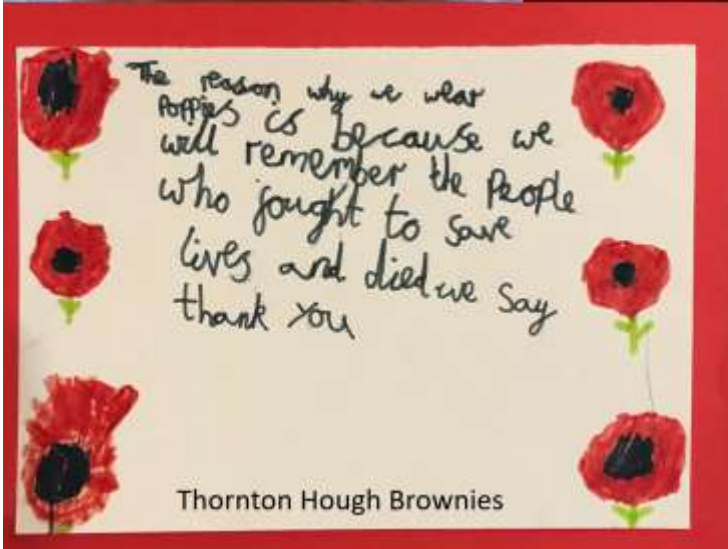 The reason why we wear
Poppies is because we
will remember the People
who fought to save
lives and died we say
thank you
Thornton Hough Brownies